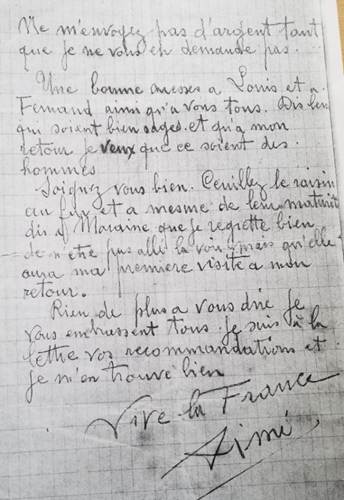 Ne m'envoyez pas d'argent tant
que je ne vous en demande pas.
Une bonne caresses a Louis et a
Fernand ainsi qu'a vous tous. Dis leur
qui soient bien sages. et qu'a mon
retour je veux que ce soient des
hommes
Soignez vous bien. Ceuillez le raisin
au fur et a mesme de leur maturité
dis a Maraine que je regrette bien
de n'etre pas allé la voir mais qu'elle
aura ma premiere visite a mon
retour.
Rien de plus a vous dire je
vous embrassent tous. je suis à la
lettre vos recommandations et
je m'en trouve bien
Vive la France
Aimé